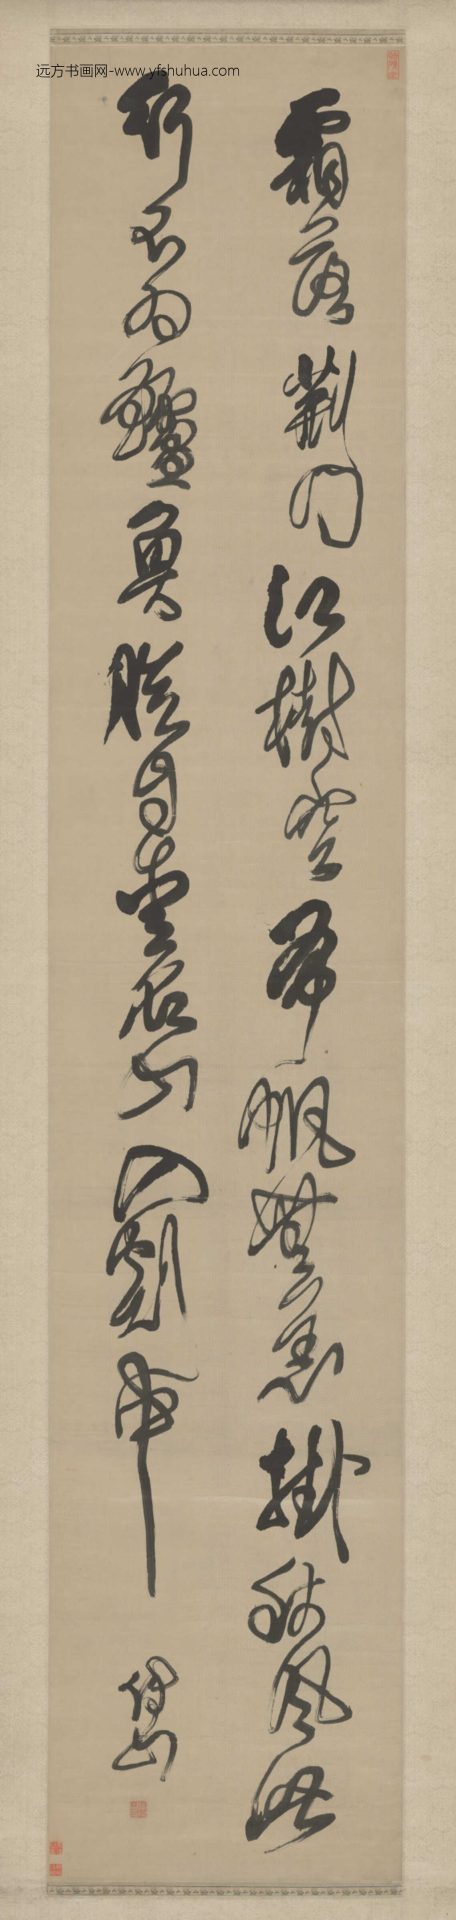 远方书画网-www.yfshuhua.com
霜落荆门江樹空布帆無恙掛秋风此
行不为鱸魚膾自愛名山入剡中
傅山